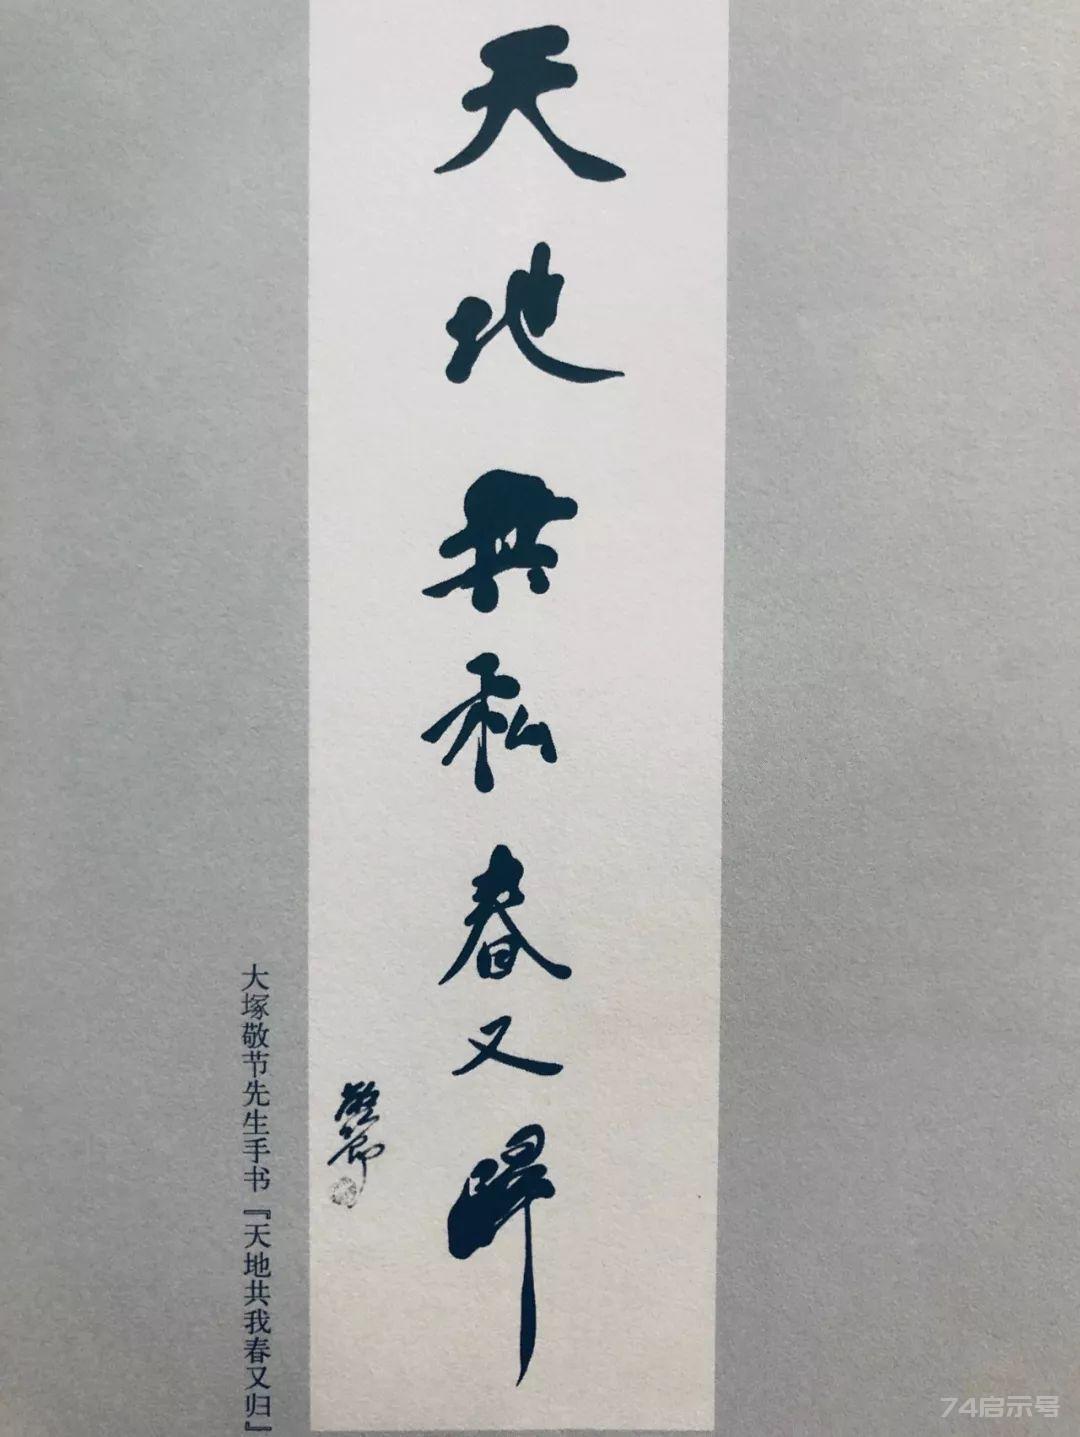 天地無私春又歸
敬節
大塚敬节先生手书『天地共我春又归』
74启示号